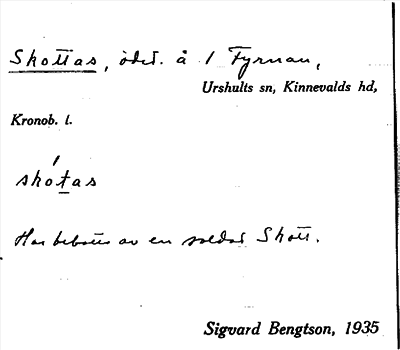 Skottas, ödet. å 1 Fyrnan,
Urshults sn, Kinnevalds hd,
Kronob. l.
skó́tas
Har bebotts av en soldat Skott.
Sigvard Bengtson, 1935